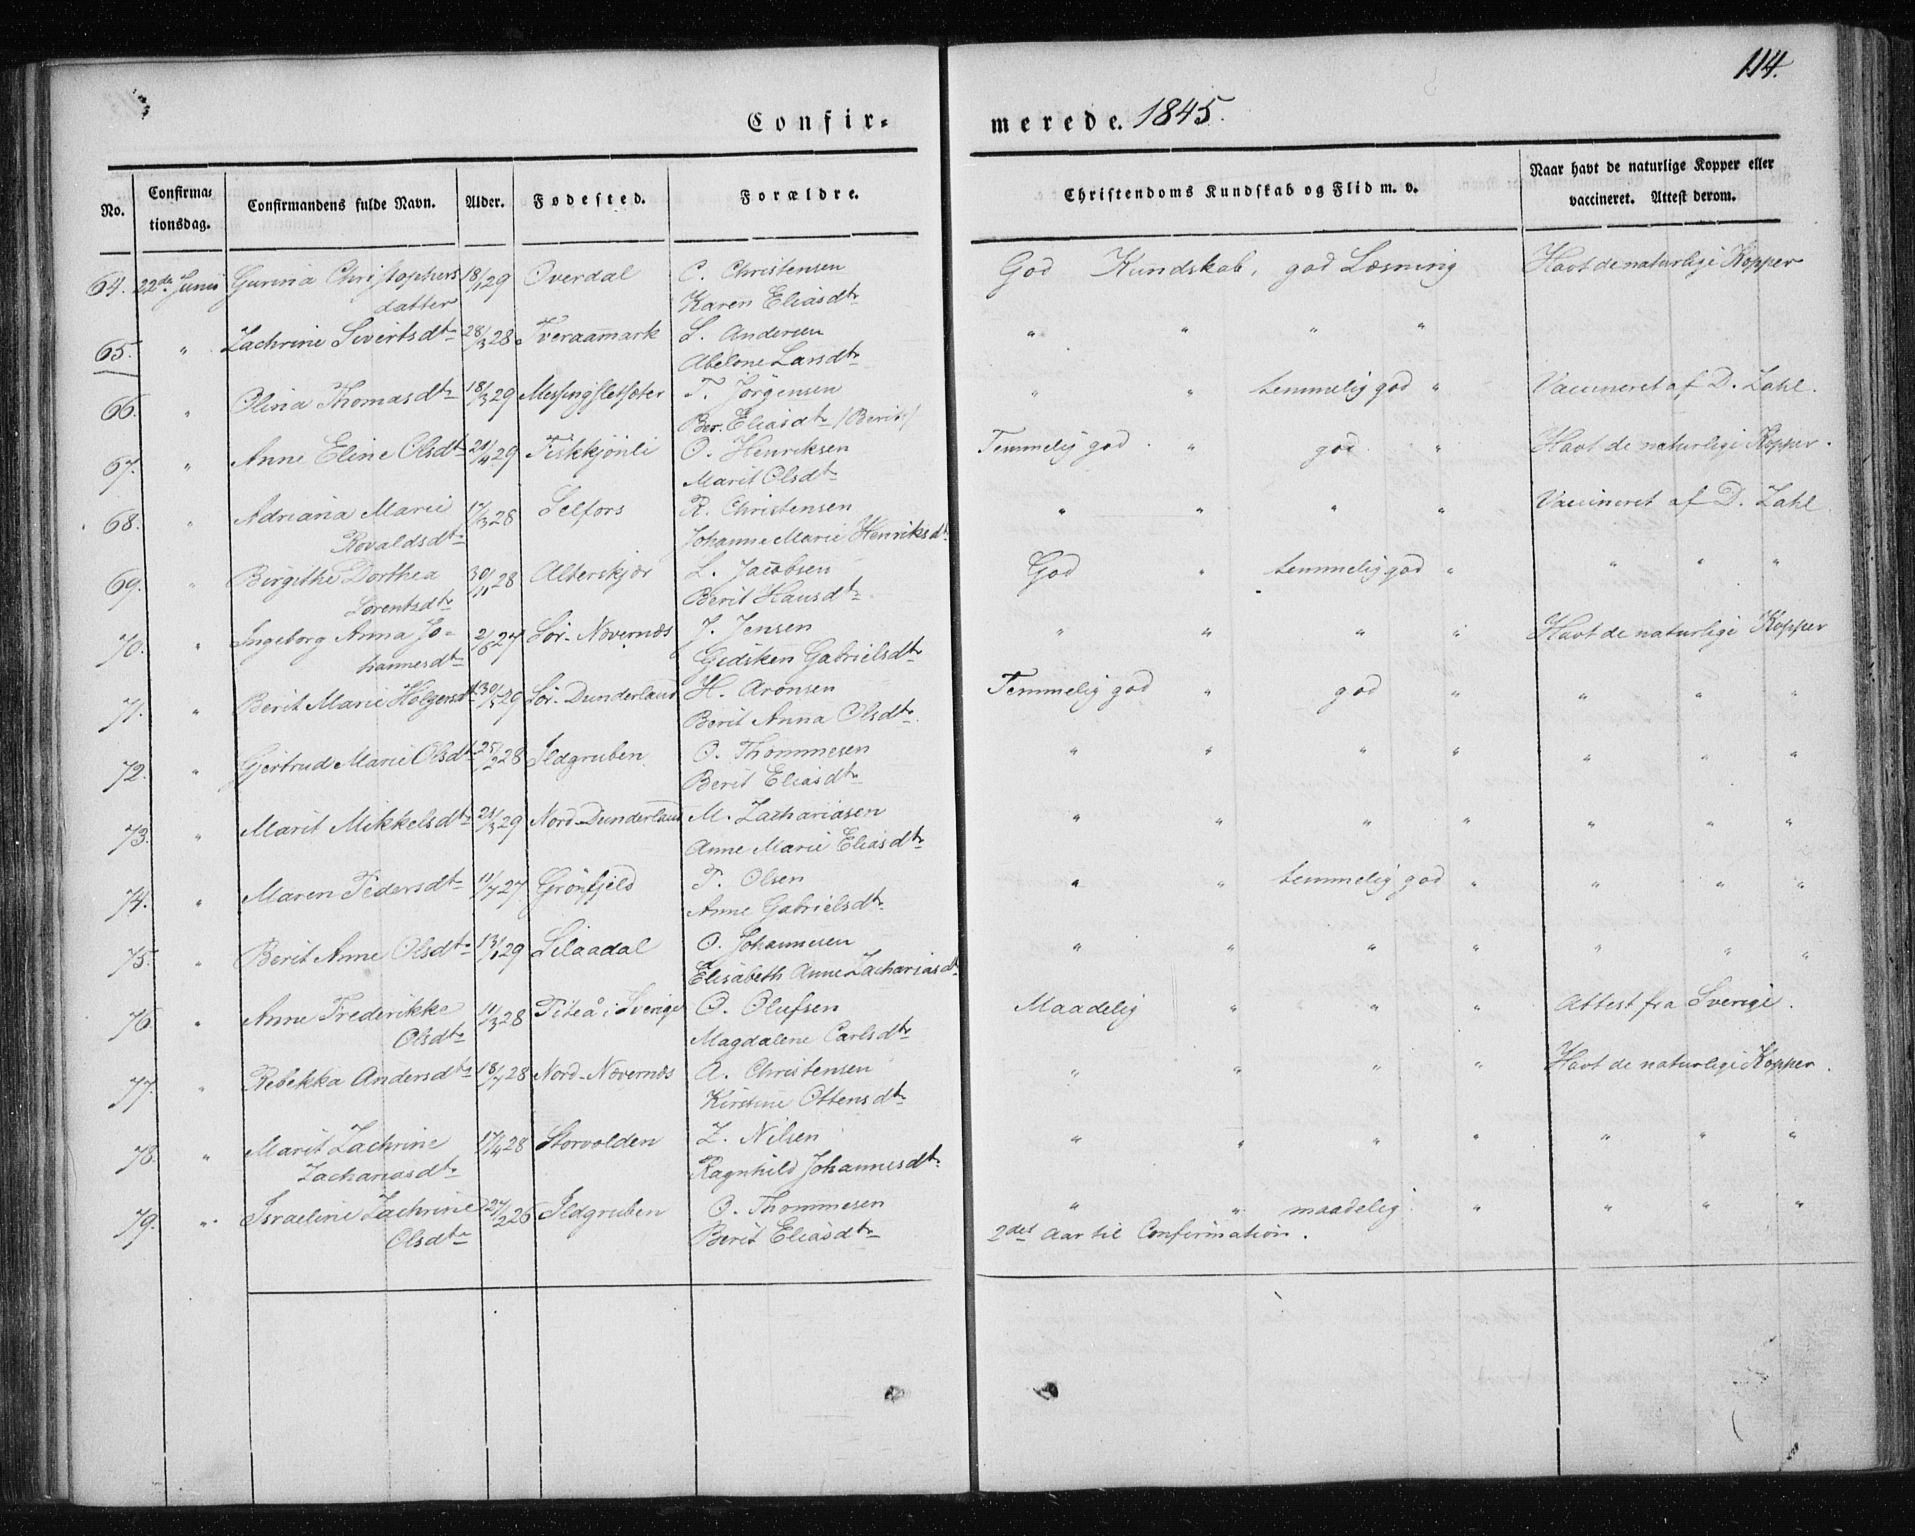 114.
Confir-
merede. 1845.
No.
Confirma-
tionsdag.
Confirmandens fulde Navn.
Alder.
Fødested.
Forældre.
Christendoms Kundskab og Flid m. v.
Naar havt de naturlige Kopper eller
vaccineret. Attest derom.
64. 22de Junii Gurina Christophers 18/1 29 Overdal C. Christensen God Kundskab, god Læsning Havt de naturlige Kopper
datter Karen Eliasdtr
65. " Zachrine Sivertsdtr 28/3 28 Tveraamark S. Andersen " " " "
Abelone Larsdtr
66. " Olina Thomasdtr 18/3 29 Messingsletsæter T. Jørgensen " " temmelig god " Vaccineret af D. Zahl.
Ber. Eliasdtr /Berit/
67. " Anne Eline Olsdtr 24/4 29 Fiskkjønli O. Henriksen Temmelig god " god " Havt de naturlige Kopper.
Marit Olsdtr
68. " Adriana Marie 17/3 28 Selfors R. Christensen " " " " Vaccineret af D. Zahl
Rovaldsdtr Johanne Marie Henriksdtr
69. " Birgithe Dorthea 30/11 28 Alterskjær L. Jacobsen God " temmelig god " " " "
Lorentsdtr Berit Hansdtr
70. " Ingeborg Anna Jo- 2/6 27 Sør-Nævernæs J. Jensen " " " " Havt de naturlige Kopper
hannesdtr Gidsken Gabrielsdtr
71. " Berit Marie Holgersdtr 30/5 29 Sør-Dunderland H. Aronsen Temmelig god " god " " " "
Berit Anna Olsdtr
72. " Gjertrud Marie Olsdtr 25/2 28 Ildgruben O. Thommesen " " " " " " "
Berit Eliasdtr
73. " Marit Mikkelsdtr 21/3 29 Nord-Dunderland M. Zachariasen " " " " " " "
Anne Marie Eliasdtr
74. " Maren Pedersdtr 11/7 27 Grønfjeld P. Olsen " " temmelig god " " " "
Anne Gabrielsdtr
75. " Berit Anne Olsdtr 13/1 29 Lilaadal O. Johannesen " " " " " " "
Elisabeth Anne Zachariasdtr
76. " Anne Frederikke 11/3 28 Piteå i Sverige O. Olufsen Maadelig " " " Attest fra Sverige.
Olsdtr Magdalene Carlsdtr
77. " Rebekka Andersdtr 18/7 28 Nord-Nævernæs A. Christensen " " " " Havt de naturlige Kopper.
Kirstine Ottensdtr
78. " Marit Zachrine 17/4 28 Storvolden Z. Nilsen " " " " " " "
Zachariasdtr Ragnhild Johannesdtr
79. " Israeline Zachrine 27/2 26 Ildgruben O. Thommesen " " maadelig " " " "
Olsdtr Berit Eliasdtr 2det Aar til Confirmation.